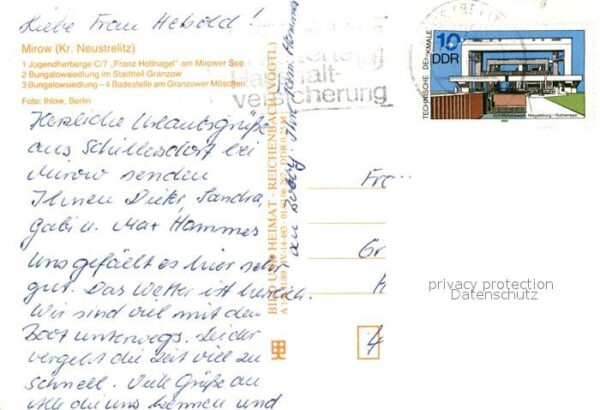 Liebe Frau Hebold!
Mirow (Kr. Neustrelitz)
1 Jugendherberge C/7 „Franz Hollnagel" am Mirower See
2 Bungalowsiedlung im Stadtteil Granzow
3 Bungalowsiedlung – 4 Badestelle am Granzower Möschen
Foto: Ihlow, Berlin
Herzliche Urlaubsgrüße
aus Schillersdorf bei
Mirow senden
Ihnen Dieter, Sandra,
Gabi u. Max Hammes
Uns gefällt es hier sehr
gut. Das Wetter ist herrlich.
Wir sind viel mit dem
Boot unterwegs. Leider
vergeht die Zeit viel zu
schnell. Viele Grüße an
alle die uns kennen und
an
BILD UND HEIMAT · REICHENBACH (VOGTL)
Haushalt-
versicherung
TECHNISCHE DENKMALE
10
DDR
Schiffshebewerk Magdeburg-Rothensee
Fr
Gr
privacy protection
Datenschutz